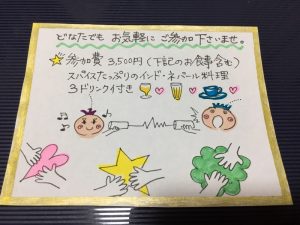 どなたでも お気軽に ご参加下さいませ。
参加費 3,500円（下記のお食事含む）
スパイスたっぷりのインド・ネパール料理
3ドリンク付き